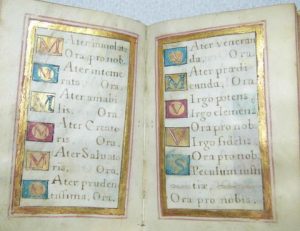 MAter inviolata
Ora pro nob.
MAter inteme
rata, Ora.
MAter amabi
lis, Ora.
MAter Creato
ris Ora.
MAter Salvato
ris, Ora.
MAter pruden
tissima, Ora.
MAter veneran
da, Ora.
MAter prædi
canda, Ora.
VIrgo potens,
VIrgo clemens,
Ora pro nob.
VIrgo fidelis
Ora pro nob.
SPeculum justi
tiæ, Ora.
Ora pro nobis.